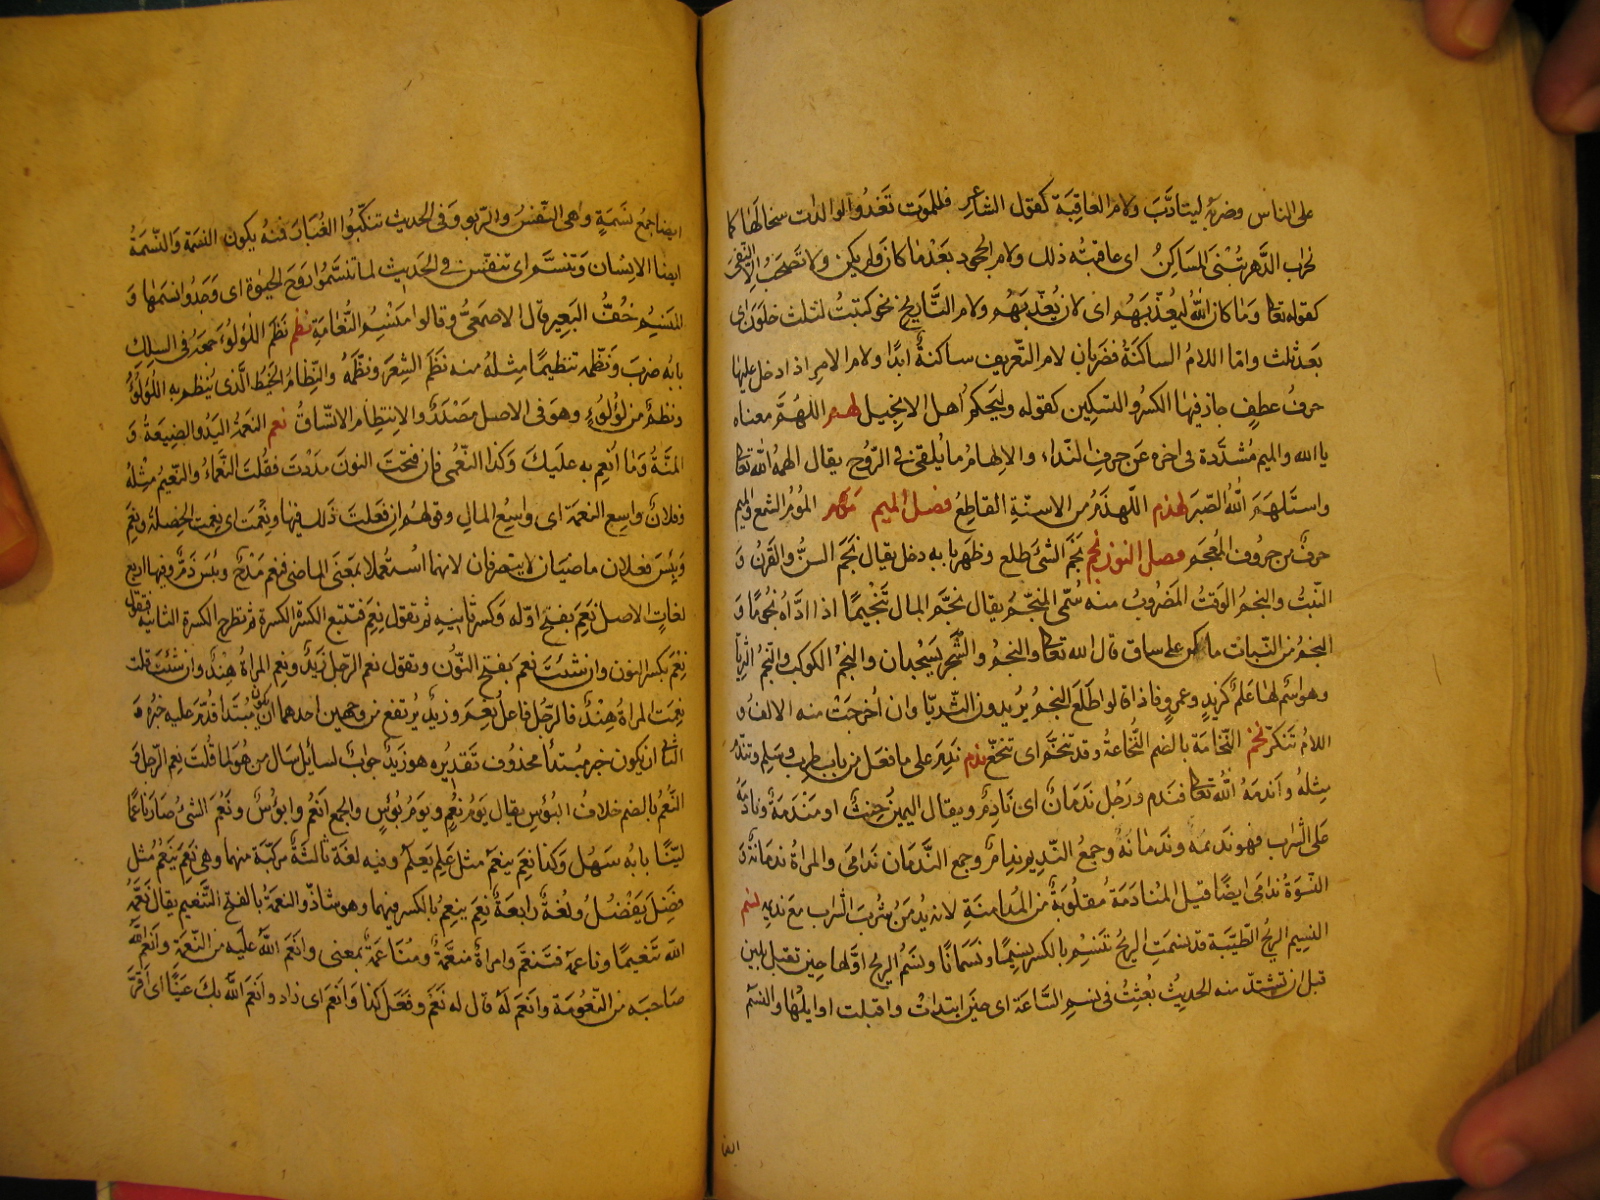 على الناس وضربه ليتادّبَ ولام العاقبَة كقول الشاعر فللموت تَغدُوا الوالدات سخالَها كما
لخراب الدَّهر تُبْنَى المسَاكِنُ اى عاقبتُه ذلك ولام الجحود بعْدَ ما كان ولم يكن ولا تَصحَبُ الا النفى
كقوله تعا وَمَا كانَ اللهُ لِيُعذّبَهُم اى لان يُعذّبَهُم ولام التَّاريخ نحو كتبتُ لثلث خلونَ اى
بَعد ثلث وامّا اللامُ الساكنَةُ فضَربان لام التّعريف ساكنةٌ ابدًا ولام الامر اذا دخل عليها
حرفُ عطفٍ جاز فيها الكسرُ والتسكين كقوله وليَحكم أهل الانجيل لهم اللهُمَّ معناه
يا الله والميم مُشدَّدة فى اخره عَن حرف النداء والالهامُ ما يُلقى فى الرُّوح يقال الهمهُ اللهُ تعا
واستَلهَمَ اللهَ الصّبرَ لهذم اللَّهذَمُ من الاسنّةِ القاطِعُ فصل الميم موم المُومُ الشمع والميم
حرفٌ من حروف المُعجَم فصل النون نجم نَجَمَ الشئ طلع وظهر بابه دخل يقال نجَمَ السنُّ والقَرنُ وَ
النّبتُ والنجمُ الوَقتُ المَضروبُ منه سُمّى المنجّمُ يقال نجَّمَ المال تَنْجيمًا اذا ادَّاهُ نجُومًا وَ
النجمُ من النّبات ما لم يكن على ساق قال الله تعا والنجمُ والشَّجر يَسْجُدان والنجمُ الكوكب والنّجمُ الثّريّا
وهو اسم لها عَلمٌ كزيدٍ وعمروٍ فاذا قالوا طَلَعَ النجمُ يُريدون الثّريّا وان اُخرجَتْ منه الالفُ و
اللامُ تَنكّرَ نخم النّخامَة بالضم النُّخاعَةُ وقد تنخَّمَ اى تنخّعَ ندم نَدِمَ على ما فعَلَ من باب طرب وسَلِمَ وتندّمَ
مِثلهُ واَندَمَهُ اللهُ تعا فنَدم ورَجُل نَدمَانٌ اى نَادِمٌ ويقال اليمينُ حِنثٌ او مَنْدَمَةٌ ونادَمَهُ
عَلى الشّراب فهو نَديمُهُ ونَدمانُهُ وجمعُ النّديم نِدامٌ وجمع النَّدمان نَدامَى والمراةُ ندمَانةٌ وَ
النّسوَةُ ندامَى ايضًا قيلَ المُنادَمَة مَقلُوبَةٌ من المُدامنَةِ لانه يُدمنُ شُربَ الشّراب مَعَ نديمه نسم
النسِيم الريحُ الطّيّبَة قد نسَمَتِ الرّيحُ تَنسِمُ بالكسر نسِيمًا ونَسَمانًا ونَسَمُ الريح اوّلها حين تقبل بلين
قبل ان تشتدّ منه الحديثُ بُعِثتُ فى نسم السَّاعَة اى حينَ ابتداتْ واقبلت اوايلُها والنسَمُ
ايضا
ايضا جمعُ نَسَمةٍ وهى النَّفَسُ والرّبوُ وَفى الحديث تنكّبوا الغُبارَ فمنه يكون النسَمَة وَالنّسَمَةُ
ايضا الانسَان وَتنسَّمَ اى تنفّسَ وفى الحَديث لما تنسَّمُوا رَوحَ الحيوة اى وَجَدُوا نسَمَها وَ
المَنسِمُ خُفُّ البَعير قال الاصمَعىُّ وقالوا مَنسِمُ النّعَامَةِ نظم نَظَمَ اللؤلؤَ جمعَهُ فى السِلك
بابُه ضربَ وَنظَّمهُ تنظيمًا مِثلهُ منه نَظَمَ الشِعرَ ونَظَّمَهُ والنِّظامُ الخَيطُ الَّذى يُنظم به اللُؤلُؤُ
ونظمٌ من لؤلُؤٍ وهوَ فى الاصل مصْدَرٌ والانتِظام الاتّسَاقُ نعم النعمَةُ اليَدُ والصَّنيعَةُ وَ
المنّةُ وَمَا اُنعِمَ به عليكَ وَكذا النُّعمى فان فتحْتَ النونَ مدَدْتَ فقُلتَ النَّعماءُ والنّعيمُ مِثلهُ
وفلانٌ واسِع النعمَةِ اى وَاسِعُ المال وقولهُم ان فعَلتَ ذلك فبها ونِعْمَت اى نِعمت الخَصلةُ ونِعمَ
وَبِئسَ فعلان ماضيَان لا يتصرفان لانهما اسْتُعملا بمَعنى الماضى فنِعْمَ مَدْحٌ وبئسَ ذمٌّ وفيها اربع
لغاتٍ الاصل نَعِمَ بفتح اوّله وَكسر ثانيهِ ثم تقول نِعِمَ فتتبع الكسرَة الكسرة ثم تطرح الكسرَة الثانيَة فتقُول
نِعْمَ بكسر النون وان شئتَ نَعمَ بفتح النّون وتقول نعم الرّجل زَيدٌ ونِعم المراةُ هِنْدٌ وان شئت قلت
نِعمَت المراةُ هِنْدٌ فالرّجُل فاعلُ نِعمَ وزيدٌ يرتفع من وجهين احدهما ان يكون مُبتدَأ قدّمَ عليه خبرُه وَ
الثانى ان يكون خبر مُبتدأ محذُوف تَقديرُه هو زَيدٌ جوابٌ لسايل سَال من هُوَ لما قُلتَ نِعم الرّجل وَ
النُّعمُ بالضم خلافُ البُؤسِ يقال يَومُ نُعمٍ ويَومُ بُؤسٍ والجمع اَنعُمٌ وابؤُسٌ ونَعُمَ الشئُ صَارَ ناعمًا
ليّنًا بابه سَهُل وَكذا نَعِمَ ينعَمُ مثل عَلِمَ يَعلَمُ وفيه لغةٌ ثالثةٌ مركّبَة منهما وهى نَعِمَ يَنعُمُ مثل
فضِلَ يَفضُلُ ولُغةٌ رابعَةٌ نعِمَ ينعِمُ بالكسر فيهما وهو شاذٌ والنعمَةُ بالفتح التَّنعيم يقال نَعَّمَهُ
اللهُ تَنعيمًا وناعمَهُ فتَنعَّمَ وامراةٌ منعَّمَةٌ ومُنَاعَمَةٌ بمعنى وانعَمَ اللهُ عليه من النّعمَة وانعَمَ اللهُ
صَاحبَه من النّعُومَة وانعَمَ لهُ قال له نَعَم وفعَل كذا وَانعَمَ اى زاد وانعَمَ اللهُ بكَ عَينًا اى اقرَّ